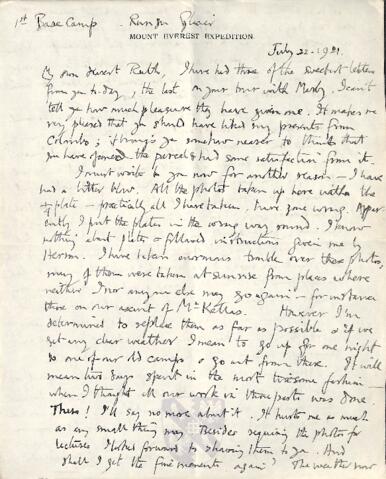 1st Base Camp
MOUNT EVEREST EXPEDITION.
July 22 - 1921.
My own dearest Ruth, I have had three of the sweetest letters
from you to-day, the last on your tour with Marby. I can't
tell you how much pleasure they have given me. It makes me
very pleased that you should have liked my presents from
Colombo; it brings you somehow nearer to think that
you have opened the parcel & had some satisfaction from it.
I must write to you now for another reason - I have
had a bitter blow. All the photos taken up here with the
¼ plate - practically all I have taken, have gone wrong. Appar-
ently I put the plates in the wrong way round. I knew
nothing about plates & followed instructions given me by
Heron. I have taken enormous trouble over these photos;
many of them were taken at sunrise from places where
neither I nor anyone else may go again - for instance
those on our ascent of Mt Kellas. However I'm
determined to replace them as far as possible & if we
get any clear weather I mean to go up for one night
to one of our old camps & go out from there. It will
mean two days spent in the most tiresome fashion
when I thought all our work in those parts was done.
There! I'll say no more about it. It hurts me as much
as any small thing may. Besides requiring the photos for
lectures I looked forward to showing them to you. And
shall I get the fine moments again? The weather now